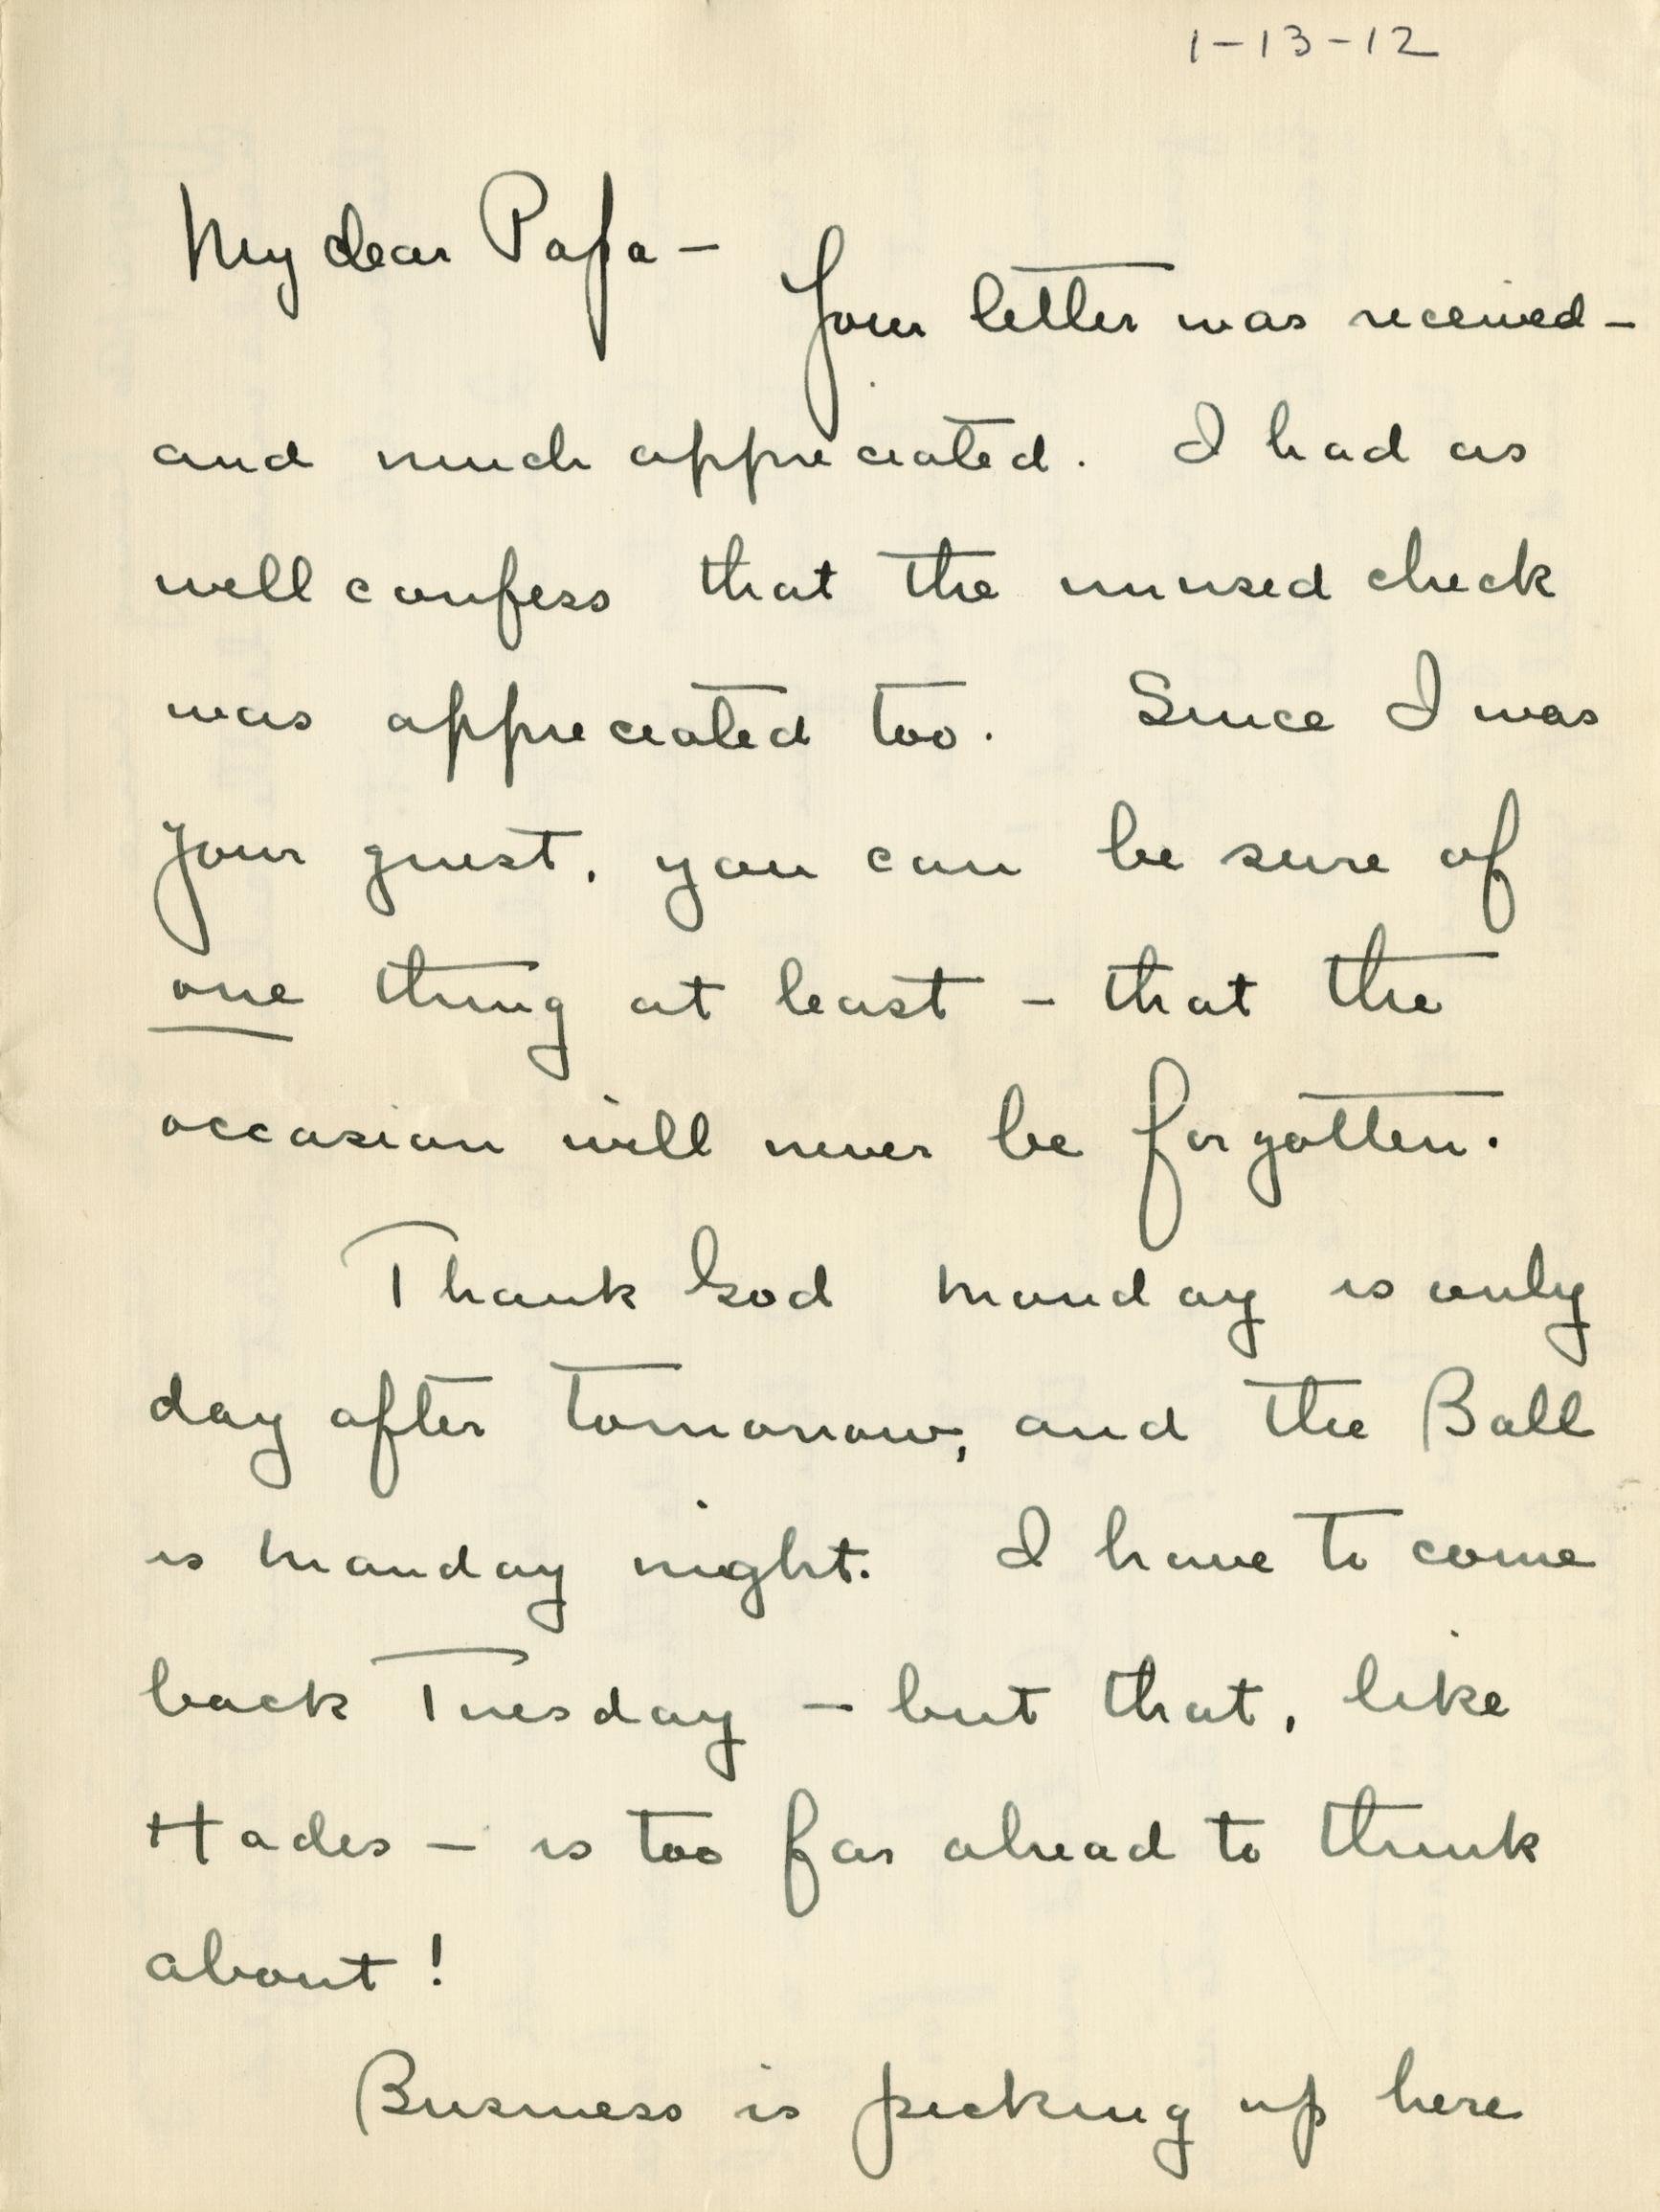 1-13-12
My dear Papa -
Your letter was received -
and much appreciated. I had as
well confess that the unused check
was appreciated too. Since I was
your guest, you can be sure of
one thing at least - that the
occasion will never be forgotten.
Thank God Monday is only
day after tomorrow, and the Ball
is Monday night. I have to come
back Tuesday - but that, like
Hades - is too far ahead to think
about!
Business is picking up here